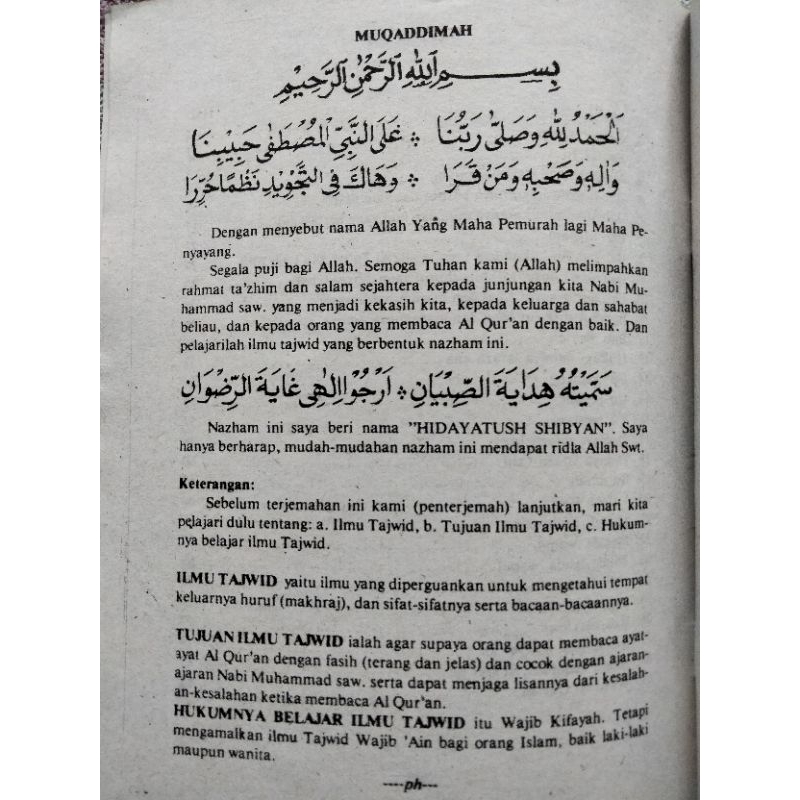 MUQADDIMAH
بِسْمِ اللهِ الرَّحْمٰنِ الرَّحِيْمِ
اَلْحَمْدُ لِلّٰهِ وَصَلَّى رَبُّنَا ❖ عَلَى النَّبِيِّ الْمُصْطَفٰى حَبِيْبِنَا
وَاٰلِهٖ وَصَحْبِهٖ وَمَنْ قَرَا ❖ وَهَاكَ فِى التَّجْوِيْدِ نَظْمًا حُرِّرَا
Dengan menyebut nama Allah Yang Maha Pemurah lagi Maha Pe-
nyayang.
Segala puji bagi Allah. Semoga Tuhan kami (Allah) melimpahkan
rahmat ta'zhim dan salam sejahtera kepada junjungan kita Nabi Mu-
hammad saw. yang menjadi kekasih kita, kepada keluarga dan sahabat
beliau, dan kepada orang yang membaca Al Qur'an dengan baik. Dan
pelajarilah ilmu tajwid yang berbentuk nazham ini.
سَمَّيْتُهُ هِدَايَةَ الصِّبْيَانِ ❖ اَرْجُوْا اِلٰهِى غَايَةَ الرِّضْوَانِ
Nazham ini saya beri nama "HIDAYATUSH SHIBYAN". Saya
hanya berharap, mudah-mudahan nazham ini mendapat ridla Allah Swt.
Keterangan:
Sebelum terjemahan ini kami (penterjemah) lanjutkan, mari kita
pelajari dulu tentang: a. Ilmu Tajwid, b. Tujuan Ilmu Tajwid, c. Hukum-
nya belajar ilmu Tajwid.
ILMU TAJWID yaitu ilmu yang diperguankan untuk mengetahui tempat
keluarnya huruf (makhraj), dan sifat-sifatnya serta bacaan-bacaannya.
TUJUAN ILMU TAJWID ialah agar supaya orang dapat membaca ayat-
ayat Al Qur'an dengan fasih (terang dan jelas) dan cocok dengan ajaran-
ajaran Nabi Muhammad saw. serta dapat menjaga lisannya dari kesalah-
an-kesalahan ketika membaca Al Qur'an.
HUKUMNYA BELAJAR ILMU TAJWID itu Wajib Kifayah. Tetapi
mengamalkan ilmu Tajwid Wajib 'Ain bagi orang Islam, baik laki-laki
maupun wanita.
----ph---